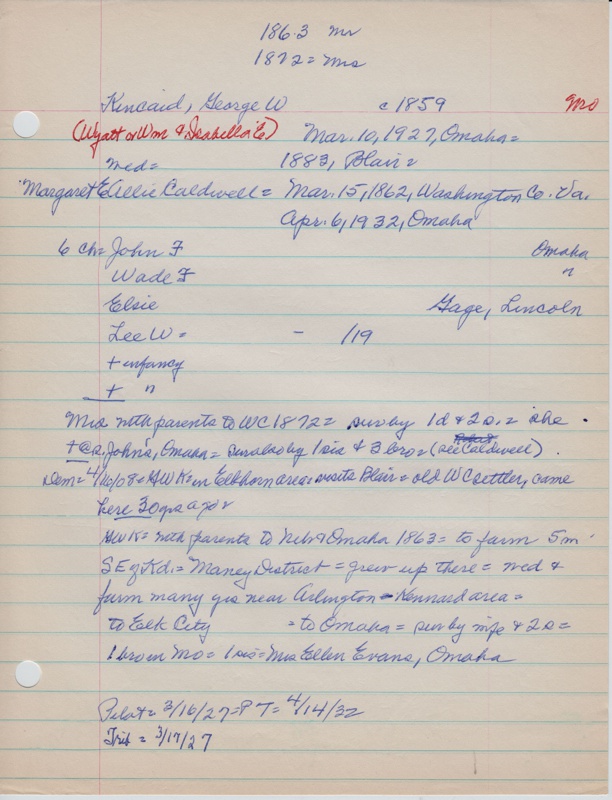 1863 Mr
1872 = Mrs
Kincaid, George W c 1859 Mo
(Wyatt or Wm & Isabella E) Mar. 10, 1927, Omaha =
med = 1883, Blair =
Margaret E Allie Caldwell = Mar. 15, 1862, Washington Co. Va.
Apr. 6, 1932, Omaha
6 ch = John F Omaha
Wade F "
Elsie Gage, Lincoln
Lee W = - /19
+ infancy
+ "
Mrs with parents to WC 1872 = surv by 1d & 2s. = she
+ @ s. John's, Omaha = surv also by 1 sis & 3 bro = (see Caldwell).
Dem = 4/16/08 = GWK = in Elkhorn area = visits Blair = old WC settler, came
here 30 yrs ago =
GWK = with parents to Neb & Omaha 1863 = to farm 5m
SE of Kd. = Maney District = grew up there = med &
farm many yrs near Arlington - Kennard area =
to Elk City = to Omaha = surv by wife & 2s =
1 bro in Mo = 1 sis = Mrs Ellen Evans, Omaha
Pilot = 3/16/27 = PT = 4/14/32
Trib = 3/17/27